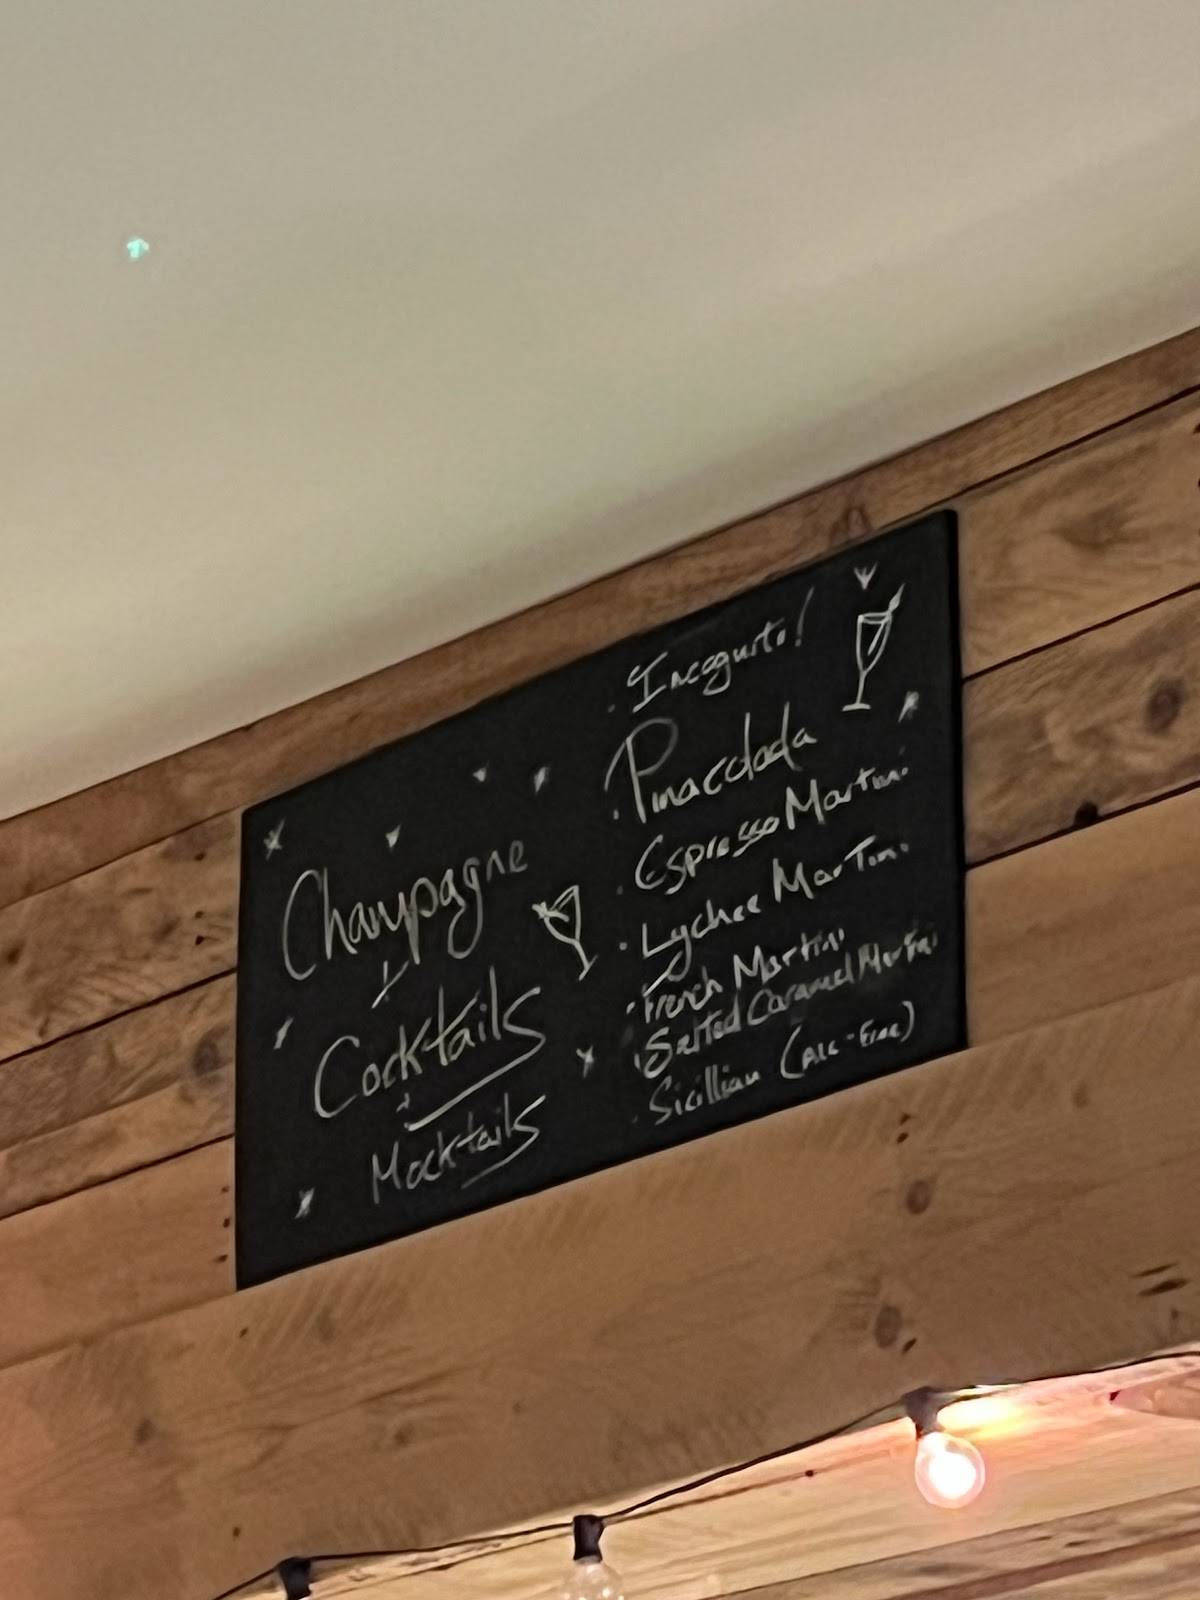 Champagne
Cocktails
+
Mocktails
. Incogurto!
. Pinacolada
. Espresso Martini
. Lychee Martini
. French Martini
. Salted Caramel Martini
. Sicillian (Alc-Free)